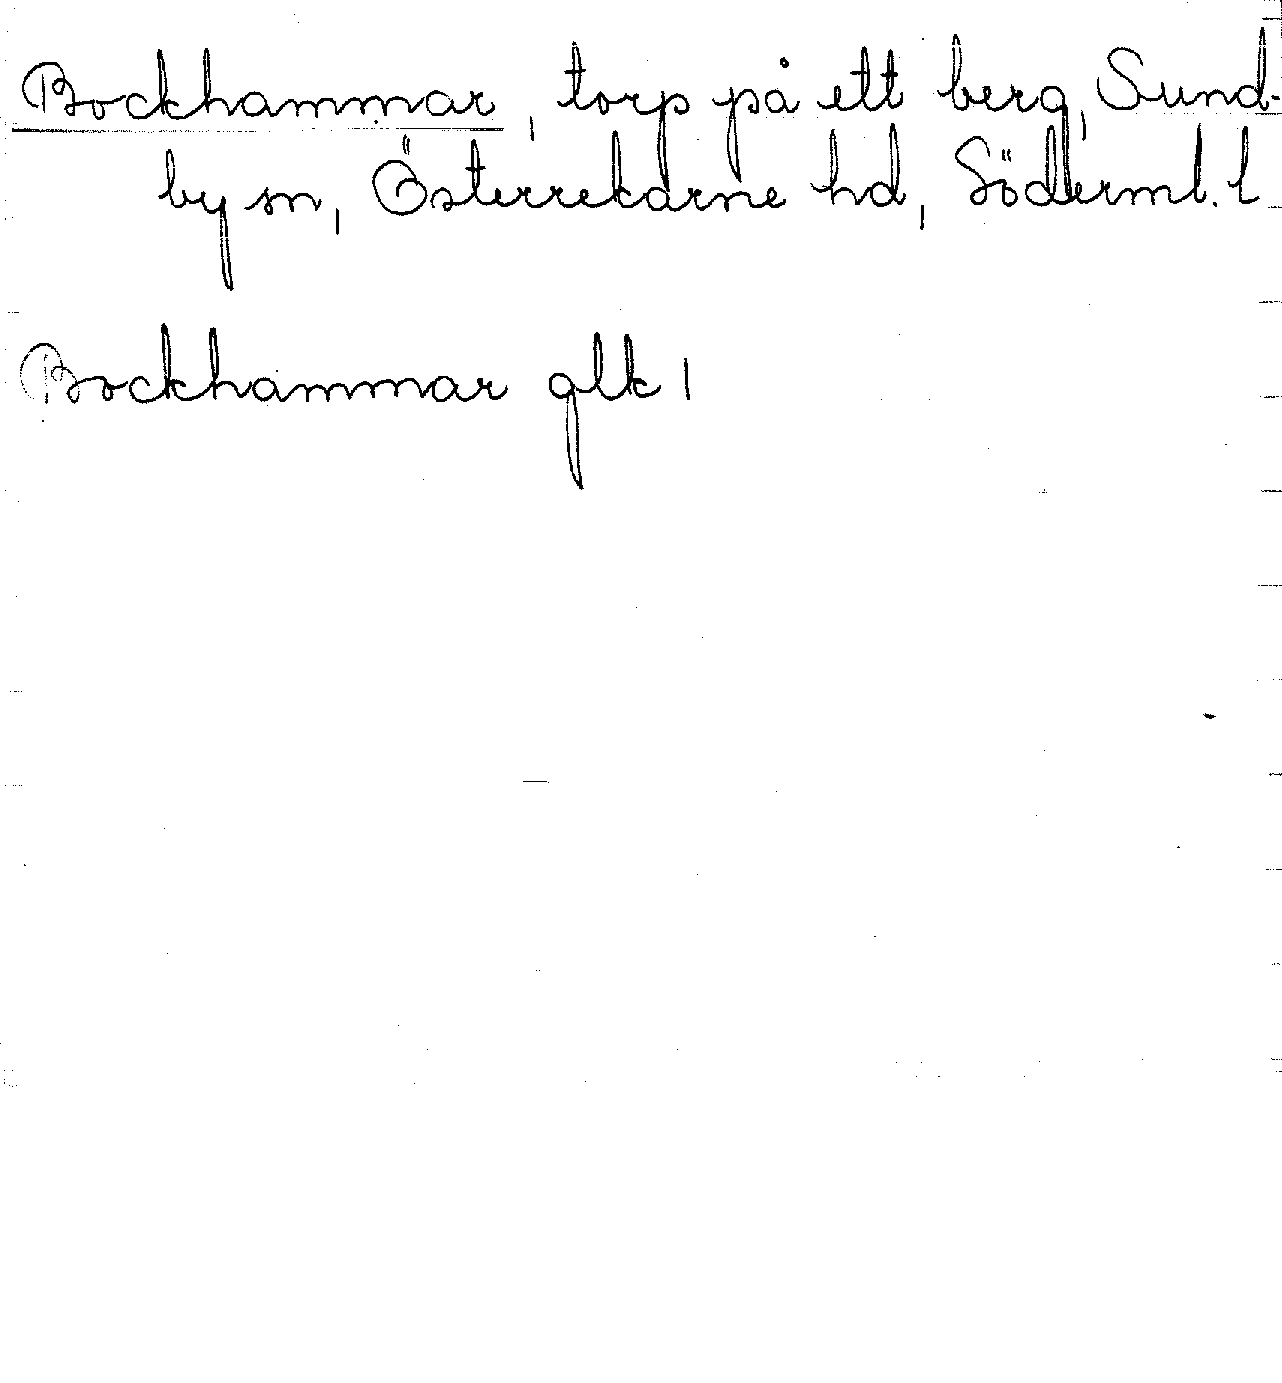 Bockhammar, torp på ett berg, Sund-
by sn, Österrekarne hd, Söderml. l
Bockhammar glk 1